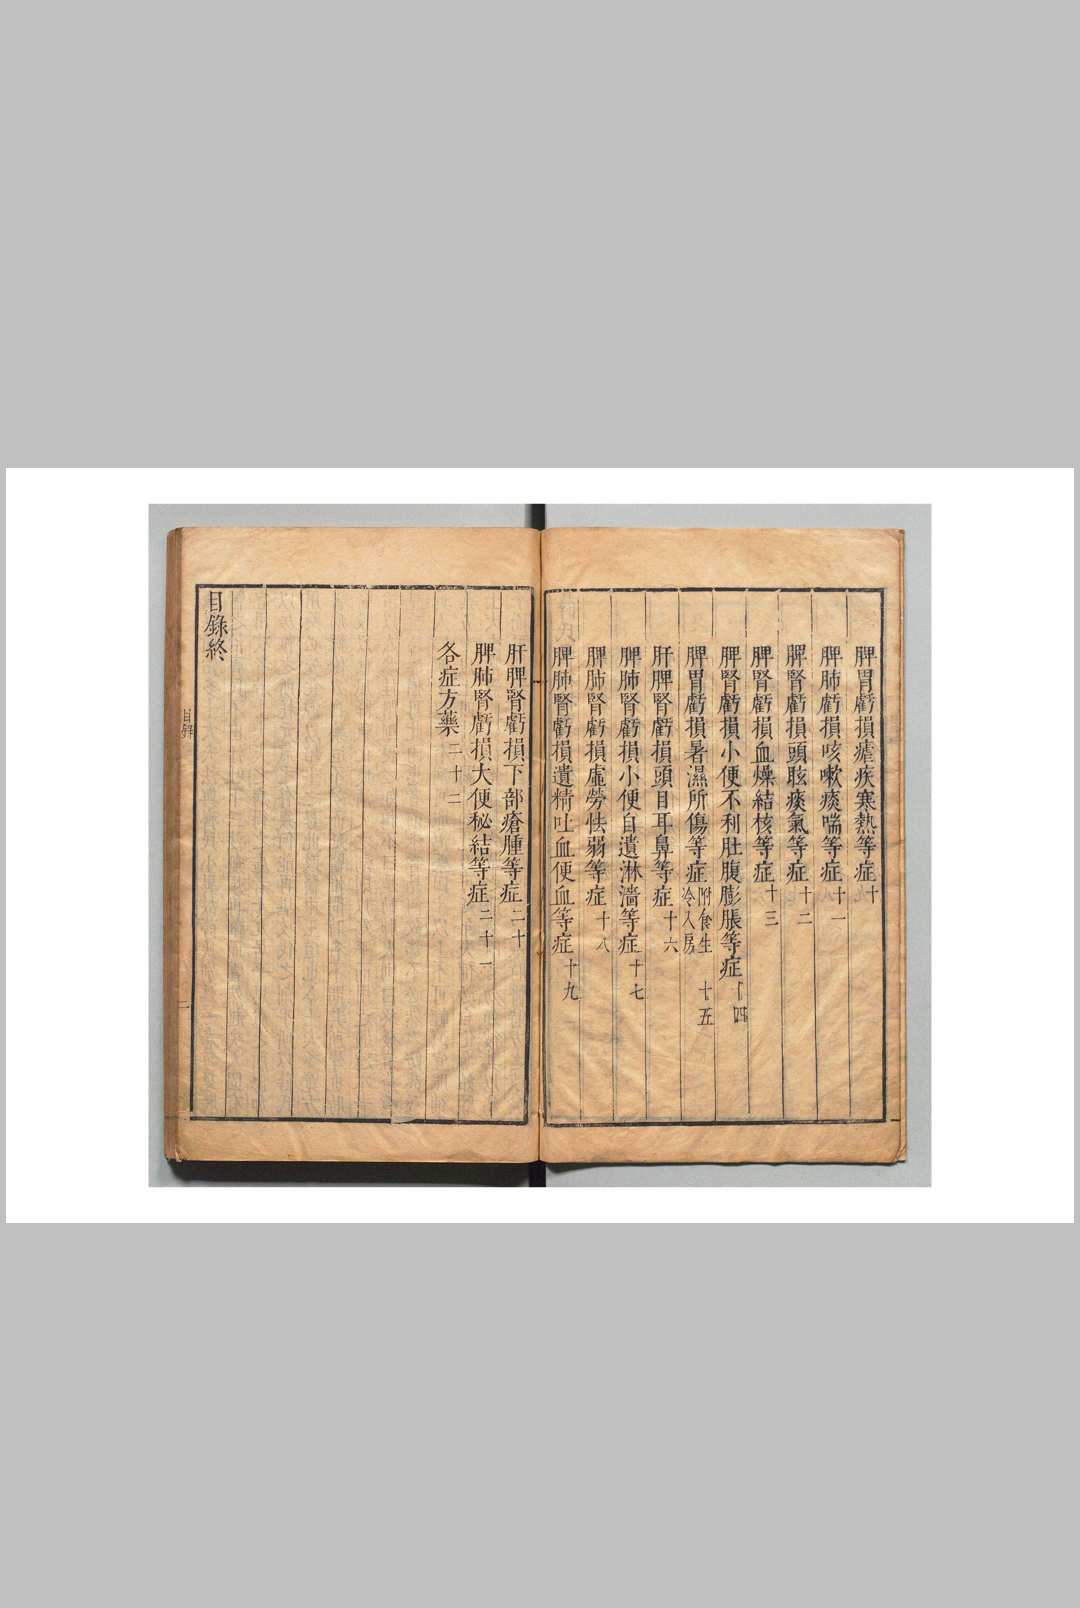 脾胃虧損瘧疾寒熱等症十
脾肺虧損咳嗽痰喘等症十一
脾腎虧損頭眩痰氣等症十二
脾腎虧損血燥結核等症十三
脾腎虧損小便不利肚腹膨脹等症十四
脾胃虧損暑濕所傷等症附食生冷入房十五
肝脾腎虧損頭目耳鼻等症十六
脾肺腎虧損小便自遺淋濇等症十七
脾肺腎虧損虛勞怯弱等症十八
脾肺腎虧損遺精吐血便血等症十九
肝脾腎虧損下部瘡腫等症二十
脾肺腎虧損大便秘結等症二十一
各症方藥二十二
目錄終
目錄
二